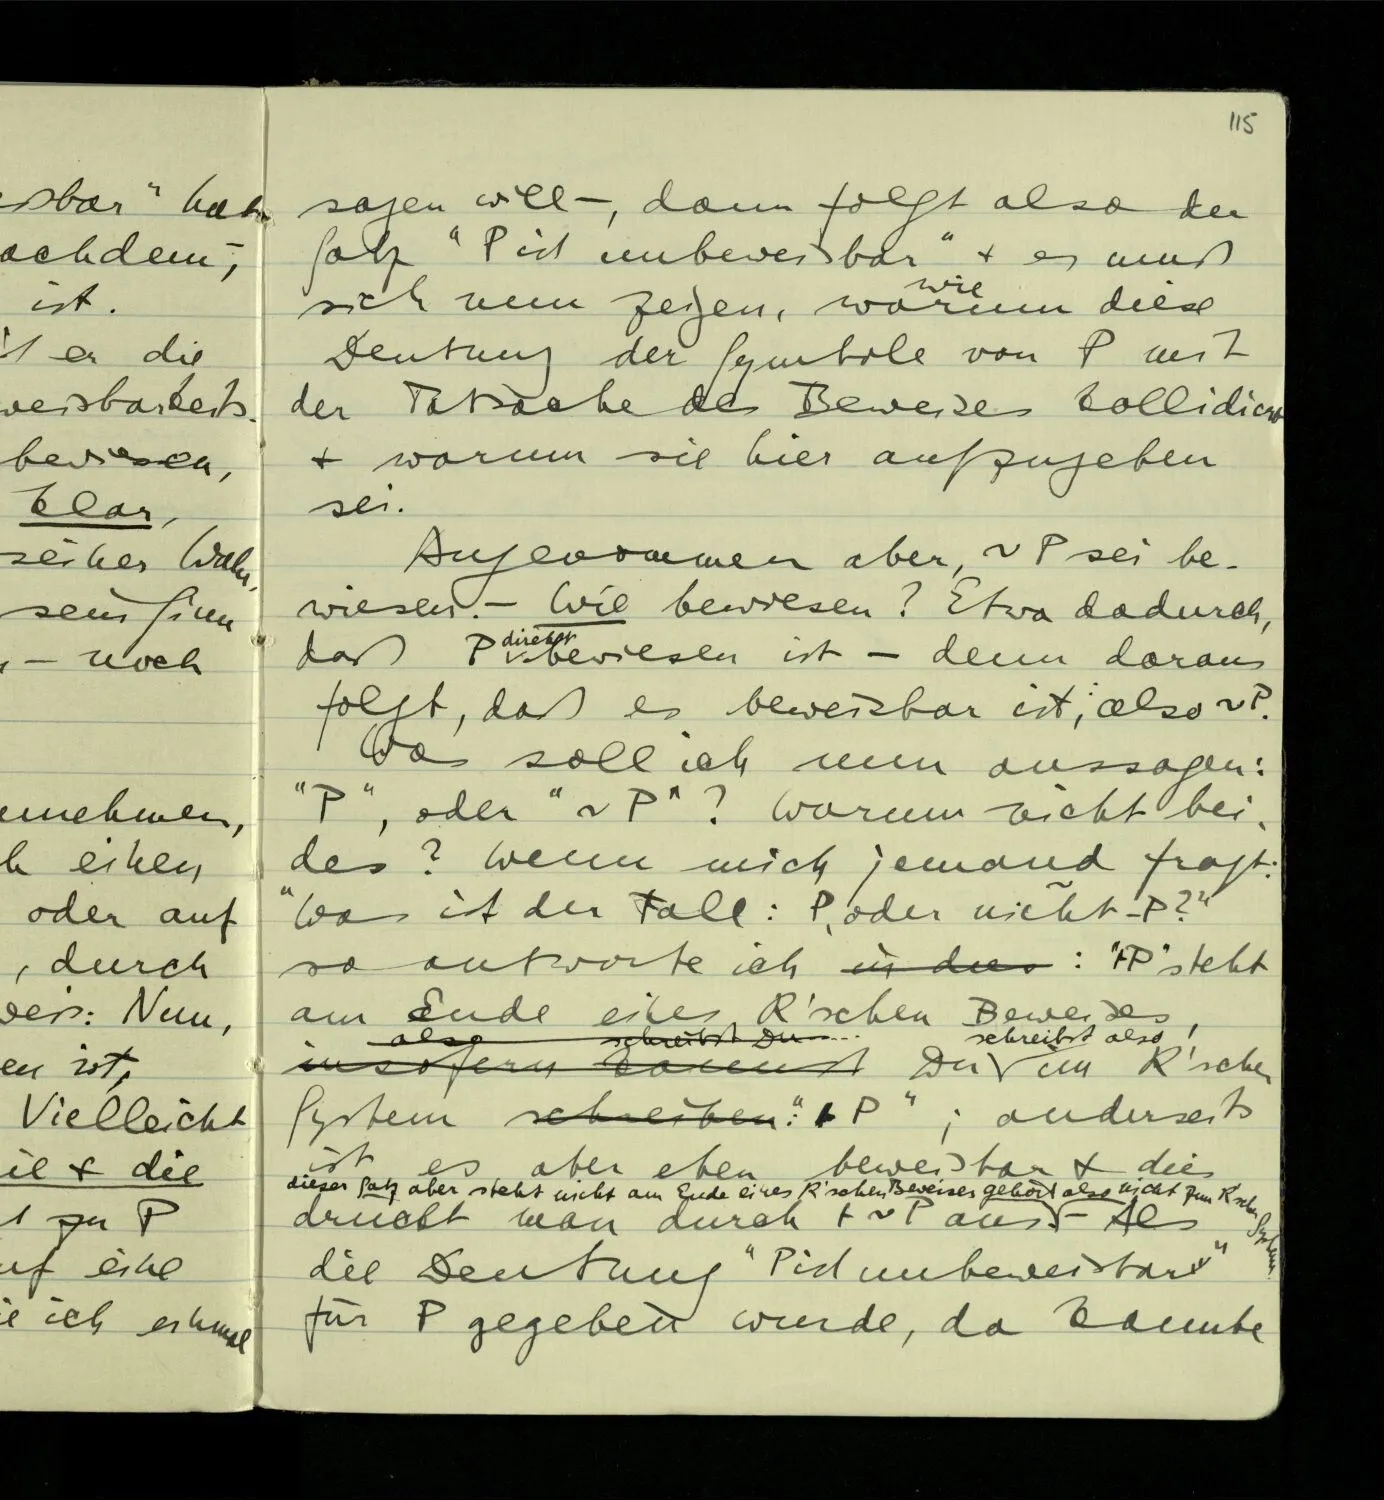 115
sbar" hat
achdem,
ist.
er die
weisbarkeits-
bewiesen,
klar,
seiner Wahr-
sein Sinn
– noch
nehmen,
einen
oder auf
, durch
weis: Nun,
en ist,
Vielleicht
ie & die
zu P
uf eine
ie ich einmal
sagen will –, dann folgt also der
Satz "P ist unbeweisbar" & es muß
wie
sich nun zeigen, warum diese
Deutung der Symbole von P mit
der Tatsache des Beweises kollidiert
& warum sie hier aufzugeben
sei.
Angenommen aber, ~P sei be-
wiesen. – Wie bewiesen? Etwa dadurch,
direkt
daß P bewiesen ist – denn daraus
folgt, daß es beweisbar ist; also ~P.
Was soll ich nun aussagen:
"P", oder "~P"? Warum nicht bei-
des? Wenn mich jemand fragt:
"Was ist der Fall: P, oder nicht-P?"
so antworte ich : "⊢P" steht
am Ende eines R'schen Beweises,
also schreibst Du ... schreibst also
insofern kannst Du im R'schen
System schreiben: "⊢P"; anderseits
ist es aber eben beweisbar & dies
dieser Satz aber steht nicht am Ende eines R'schen Beweises gehört also nicht zum R'schen System.
drückt man durch ⊢~P aus – Als
die Deutung "P ist unbeweisbar"
für P gegeben wurde, da kannte